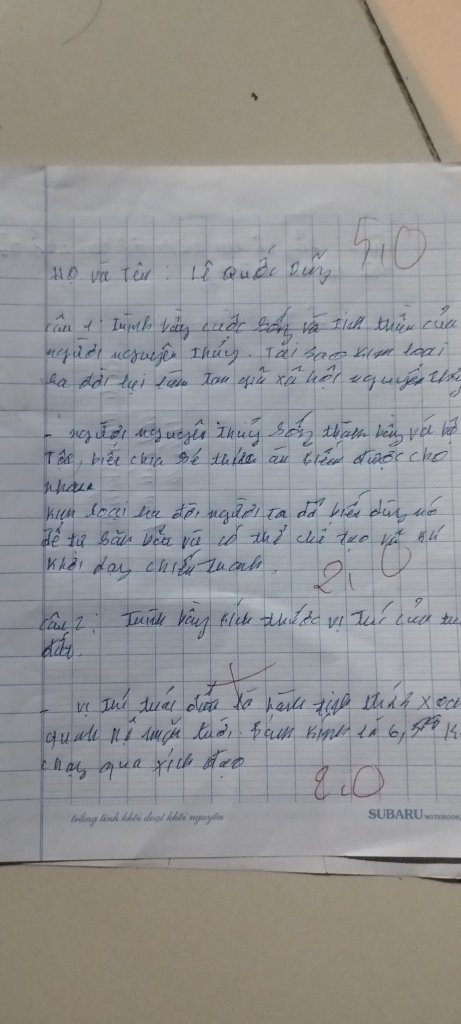 5,0
Họ và Tên : Lê Quốc Dũng
Câu 1: Trình bày cuộc sống và tinh thần của
người nguyên thủy. Tại sao kim loại
ra đời lại làm tan giã xã hội nguyên thủy
- người nguyên thủy sống thành bầy và bộ
Tộc, biết chia sẻ thức ăn kiếm được cho
nhau
kim loại ra đời người ta đã biết dùng nó
để săn bắn và có thể chế tạo vũ khí
chiến tranh.
2,0
Câu 2: Trình bày kích thước vị trí của
đất.
- vị trí trái đất là hành tinh thứ
quanh hệ mặt trời. Bán kính là 6,
chạy qua xích đạo
2,0
trắng tinh khôi đoạt khôi nguyên
SUBARU NOTEBOOK